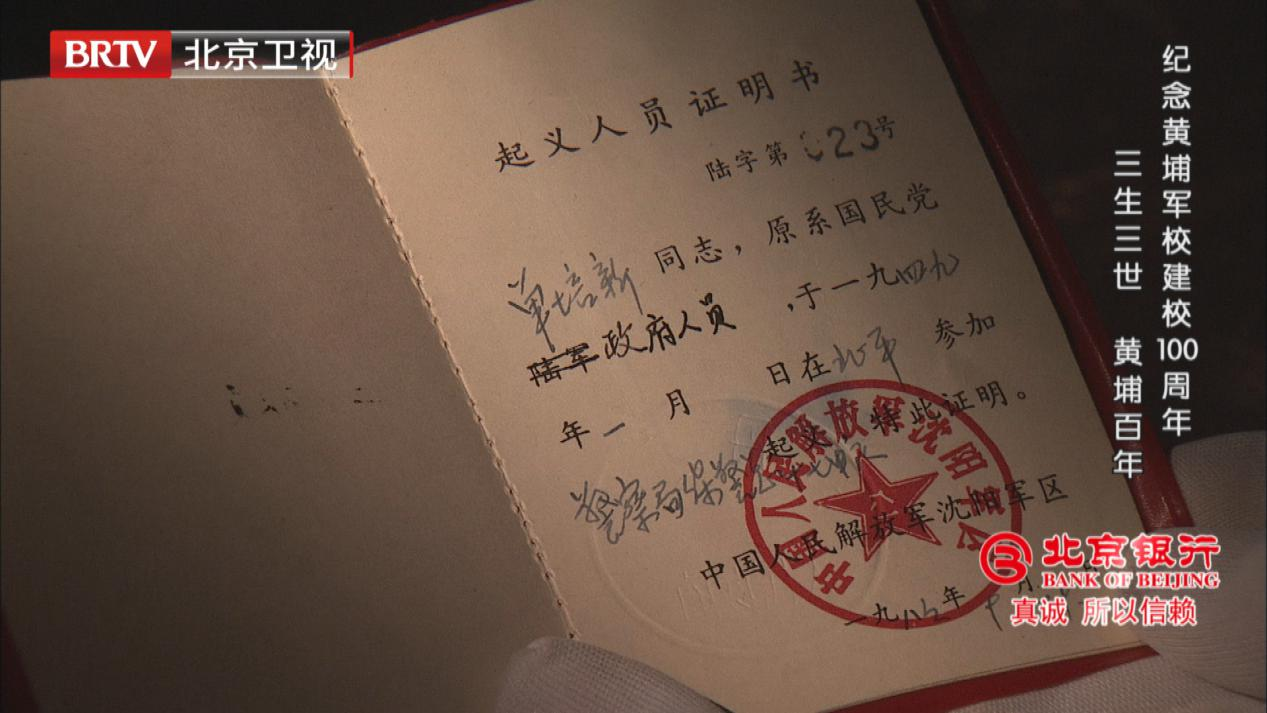 BRTV 北京卫视
纪念黄埔军校建校100周年
三生三世 黄埔百年
起义人员证明书
陆字第023号
单培新 同志，原系国民党
陆军政府人员，于一九四九
年一月 日在北平 参加
起义，特此证明。
警察局保警
中国人民解放军沈阳军区
一九八 年 月
中国人民解放军沈阳军区
北京银行
BANK OF BEIJING
真诚 所以信赖